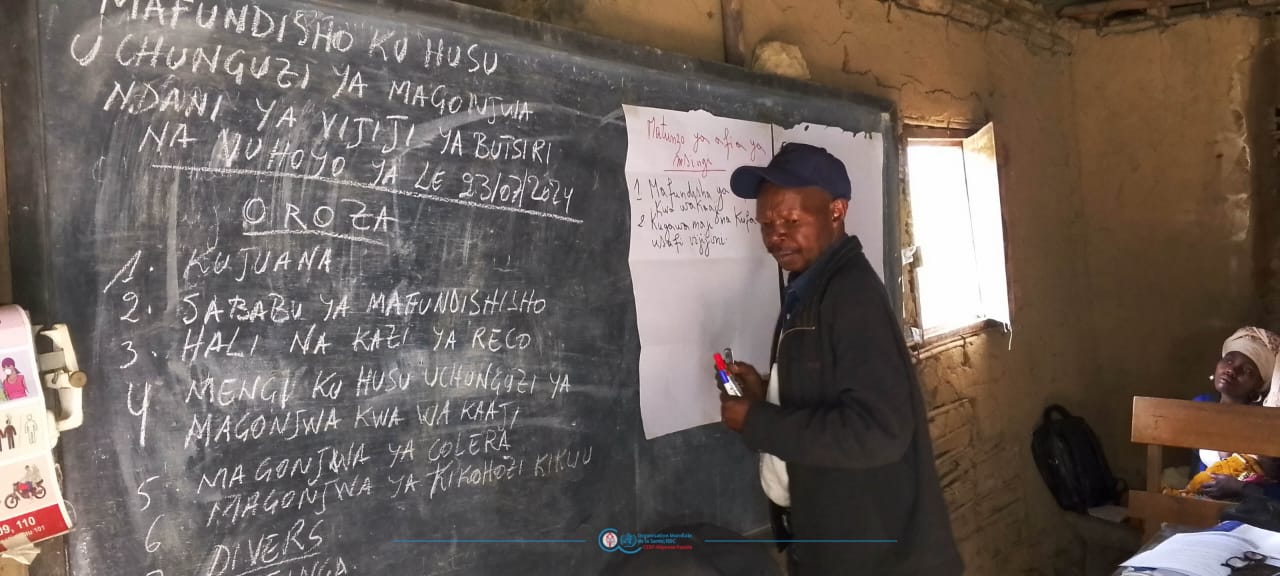 MAFUNDISHO KU HUSU
UCHUNGUZI YA MAGONJWA
NDANI YA VIJIJI YA BUTSIRI
NA VUHOYO YA LE 23/07/2024
OROZA
1. KUJUANA
2. SABABU YA MAFUNDISHISHO
3. HALI NA KAZI YA RECO
4 MENGI KU HUSU UCHUNGUZI YA
MAGONJWA KWA WA KAAJI
5. MAGONJWA YA COLERA
MAGONJWA YA KIKOHOZI KIKUU
6 DIVERS
Matunzo ya afia ya
msingi
1 Mafundisha ya
Kwa wakaaji
2 Kugawa maji na
usafi vijijini
09, 110
101
Organisation Mondiale
de la Santé, RDC